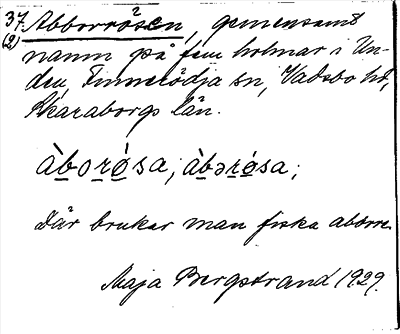 37. Abborrösen, gemensamt
(2) namn på fem holmar i Un-
den, Finnerödja sn, Vadsbo hd,
Skaraborgs län.
àborǿsa; àbərǿsa;
där brukar man fiska abborre.
Maja Bergstrand 1929.